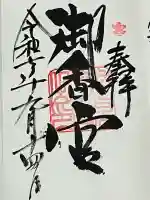 奉拝
御香宮
令和年月十四日